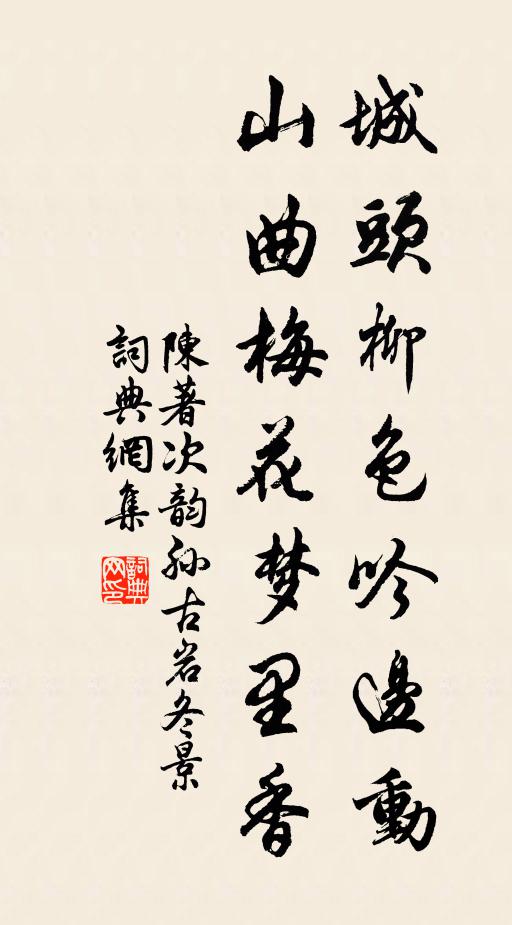 城頭柳色吟邊動
山曲梅花梦里香
陳著次韵孫古岩冬景
詞典網集
詞典网印